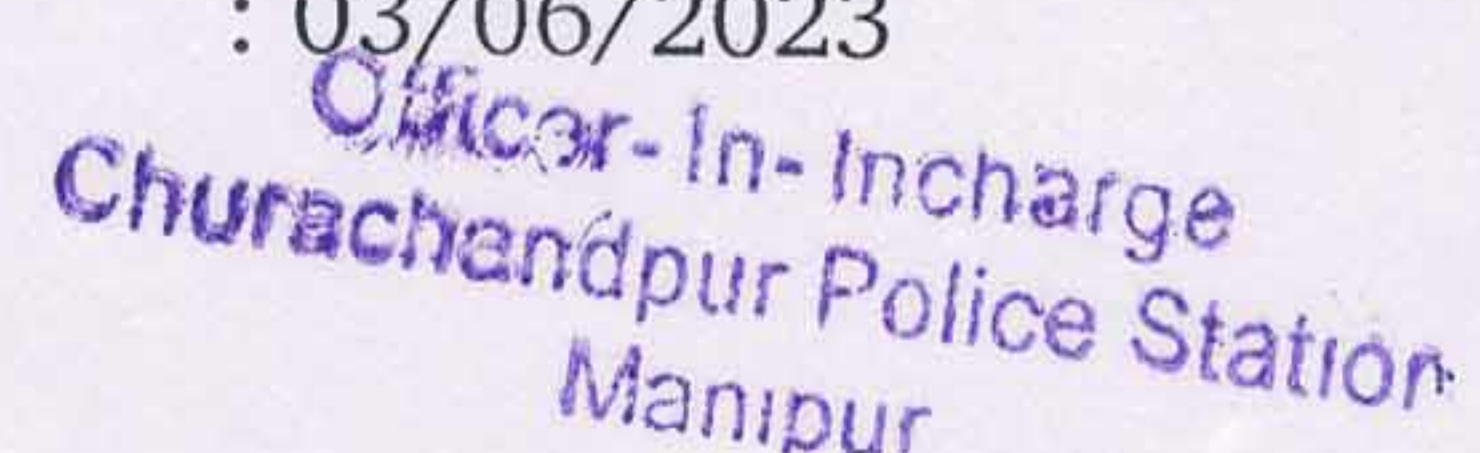 : 03/06/2023
Officer-In-Incharge
Churachandpur Police Station
Manipur